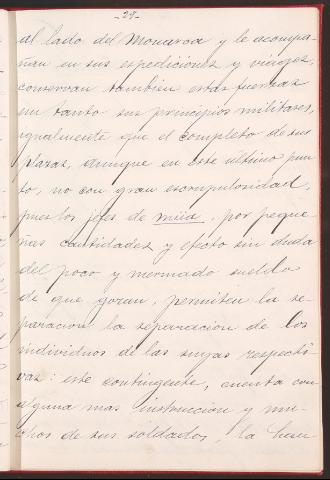 -28-
al lado del Monarca y le acompa-
ñan en sus espediciónes y viages,
conservan tambien estas fuerzas
un tanto sus principios militares,
igualmente que el completo de sus
plazas, aunque en este último pun
to, no con gran escrupulosidad,
pues los jefes de miia, por peque-
ñas cantidades y efecto sin duda
del poco y mermado sueldo
de que gozan, permiten la se-
paracion la separación de los
individuos de las suyas respecti-
vas: este contingente, cuenta con
alguna mas instrucción y mu-
chos de sus soldados, la han